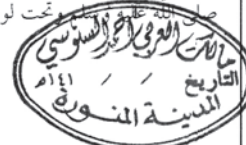 صلى الله عليه وسلم وتحت لو
مالك العرفي أحمد السنوسي
التاريخ / / ١٤١هـ
المدينة المنورة